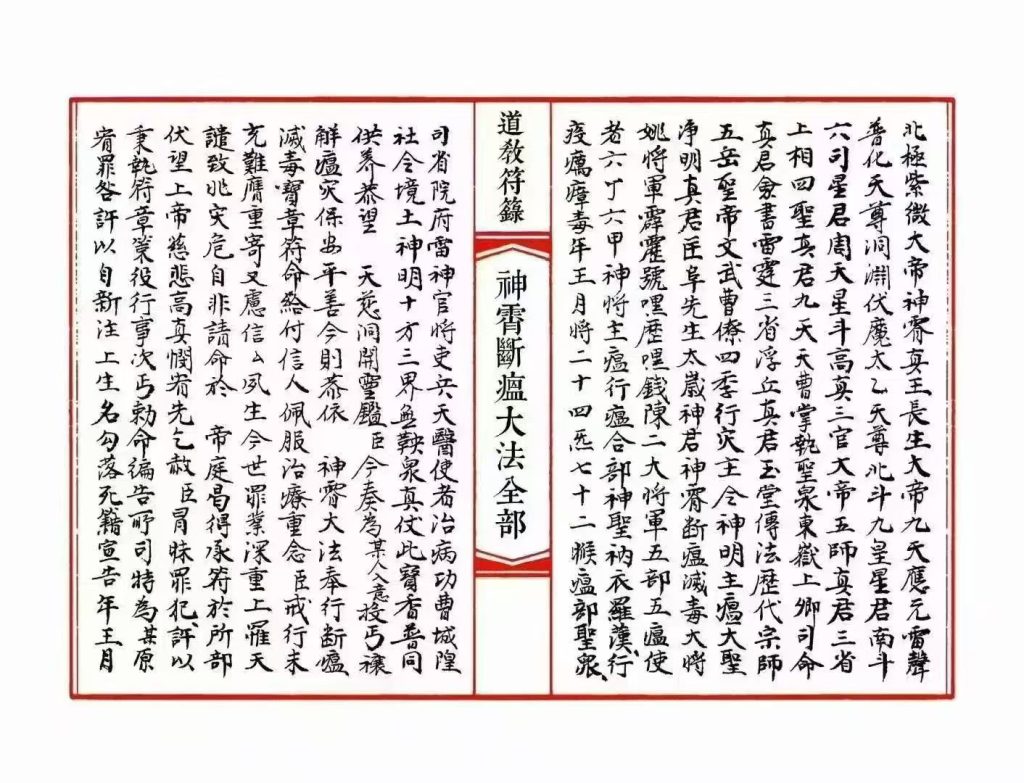 北極紫微大帝神霄真王長生大帝九天應元雷聲
普化天尊洞淵伏魔太乙天尊北斗九皇星君南斗
六司星君周天星斗高真三官大帝五師真君三省
上相四聖真君九天天曹掌執聖衆東嶽上卿司命
真君僉書雷霆三省浮丘真君玉堂傳法歷代宗師
五岳聖帝文武曹僚四季行灾主令神明主瘟大聖
净明真君匡阜先生太歲神君神霄断瘟滅毒大將
姚將軍霹靂號哩歷哩錢陳二大將軍五部五瘟使
者六丁六甲神將主瘟行瘟合部神聖衲衣羅漢行
疫癘瘴毒年王月將二十四炁七十二候瘟部聖眾
道教符籙
神霄斷瘟大法全部
司省院府雷神官將吏兵天醫使者治病功曹城隍
社令境土神明十方三界無鞅衆真仗此寶香普同
供养恭望 天慈洞開靈鑑臣今奏為某人入意投丐禳
解瘟灾保安平善今則恭依 神霄大法奉行断瘟
滅毒寶章符命給付信人佩服治療重念臣戒行未
充難膺重寄又慮信厶夙生今世罪業深重上罹天
譴致兆灾危自非請命於 帝庭曷得承符於所部
伏望上帝慈悲高真憫宥先乞赦臣冒昧罪犯許以
秉執符章業役行事次丐勅命徧告所司特為某原
宥罪咎許以自新注上生名勾落死籍宣告年王月